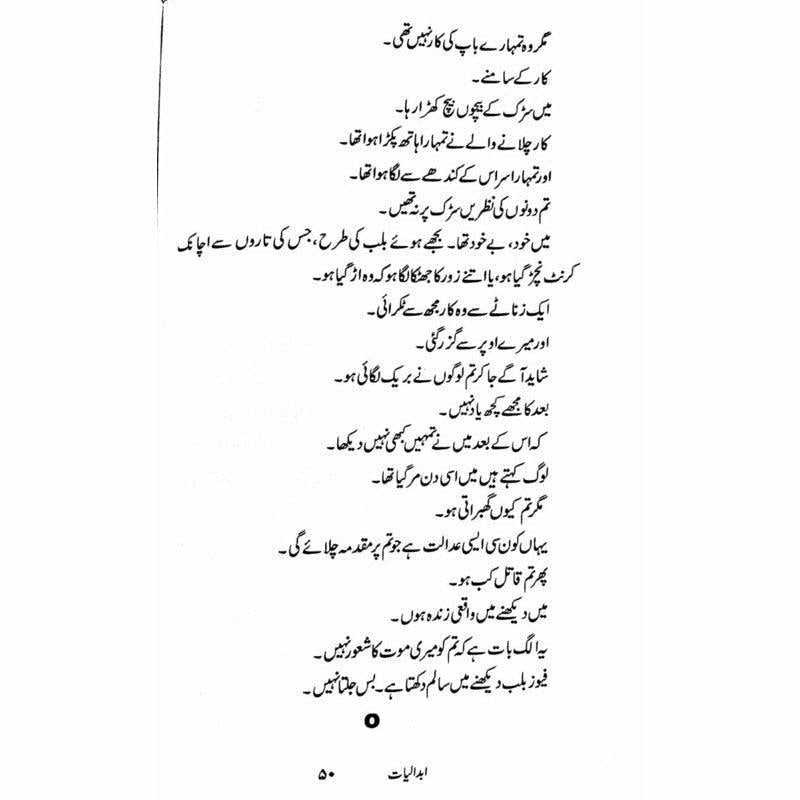 مگر وہ تمہارے باپ کی کار نہیں تھی۔
کار کے سامنے۔
میں سڑک کے بیچوں بیچ کھڑا رہا۔
کار چلانے والے نے تمہارا ہاتھ پکڑا ہوا تھا۔
اور تمہارا سر اس کے کندھے سے لگا ہوا تھا۔
تم دونوں کی نظریں سڑک پر نہ تھیں۔
میں خود، بے خود تھا۔ بجھے ہوئے بلب کی طرح، جس کی تاروں سے اچانک
کرنٹ نچڑ گیا ہو، یا اتنے زور کا جھٹکا لگا ہو کہ وہ اڑ گیا ہو۔
ایک زناٹے سے وہ کار مجھ سے ٹکرائی۔
اور میرے اوپر سے گزر گئی۔
شاید آگے جا کر تم لوگوں نے بریک لگائی ہو۔
بعد کا مجھے کچھ یاد نہیں۔
کہ اس کے بعد میں نے تمہیں کبھی نہیں دیکھا۔
لوگ کہتے ہیں میں اسی دن مر گیا تھا۔
مگر تم کیوں گھبراتی ہو۔
یہاں کون سی ایسی عدالت ہے جو تم پر مقدمہ چلائے گی۔
پھر تم قاتل کب ہو۔
میں دیکھنے میں واقعی زندہ ہوں۔
یہ الگ بات ہے کہ تم کو میری موت کا شعور نہیں۔
فیوز بلب دیکھنے میں سالم دکھتا ہے۔ بس جلتا نہیں۔
o
ابدالیات ۵۰